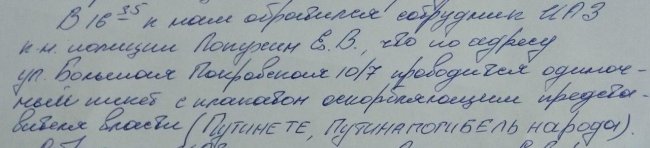 В 16 35 к нам обратился сотрудник ИАЗ
к-н полиции Лопухин Е.В., что по адресу
ул. Большая Покровская 10/7 проводится одиноч-
ный пикет с плакатом оскорбляющим предста-
вителя власти (ПУТИНЕТЕ, ПУТИНАПОГИБЕЛЬ народа).